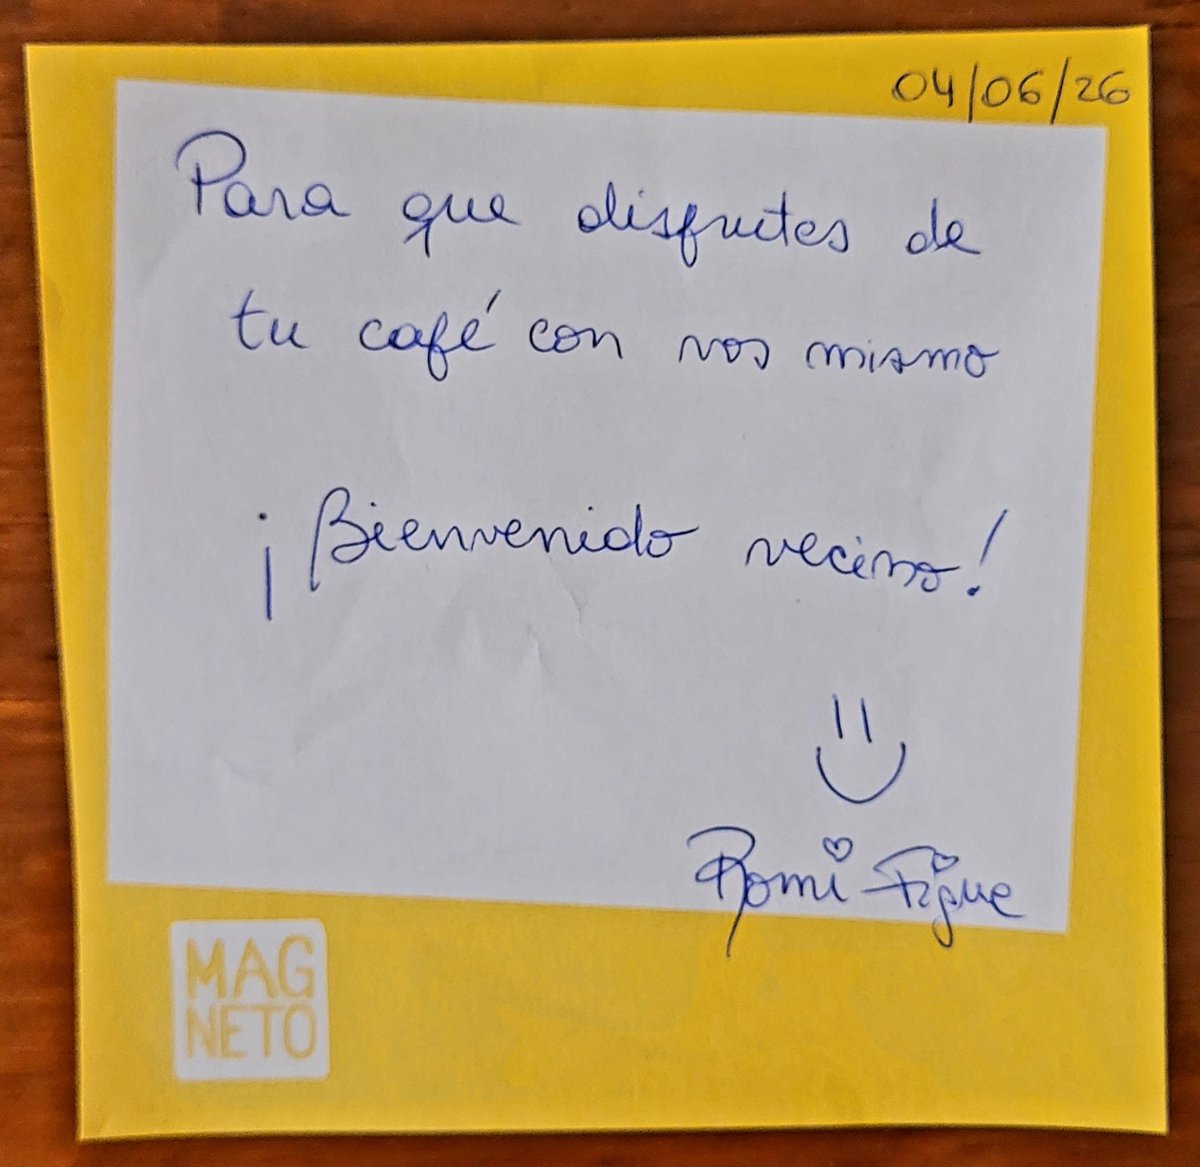 04/06/26
Para que disfrutes de
tu café con vos mismo
¡Bienvenido vecino!
Romi Figue
MAG
NETO